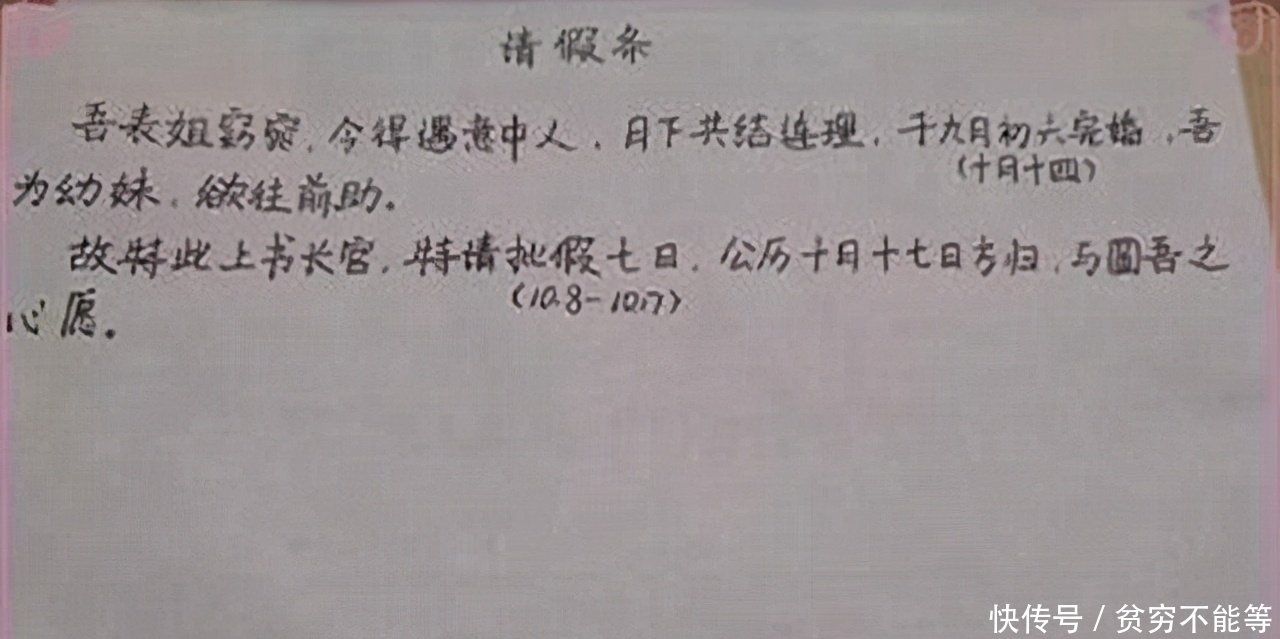 请假条
吾表姐窈窕，今得遇意中人，日下共结连理，于九月初六完婚，吾
（十月十四）
为幼妹，欲往前助。
故特此上书长官，特请批假七日，公历十月十七日方归，与圆吾之
（10.8-10.17）
心愿。
快传号 / 贫穷不能等